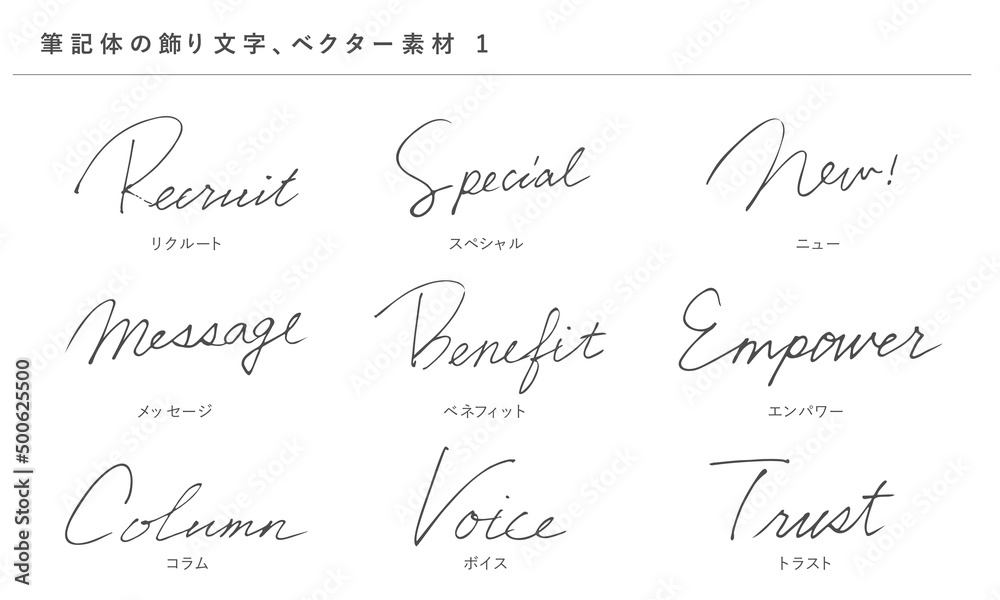 筆記体の飾り文字、ベクター素材 1
Recruit Special New!
リクルート スペシャル ニュー
Message Benefit Empower
メッセージ ベネフィット エンパワー
Column Voice Trust
コラム ボイス トラスト
Adobe Stock | #500625500